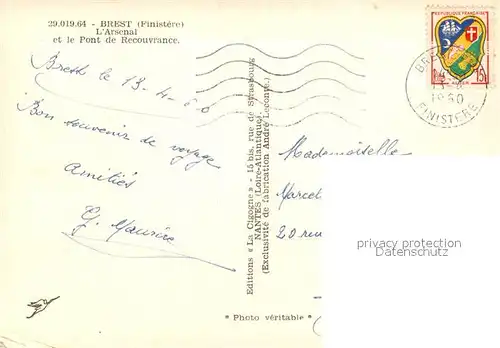 29.019.64 - BREST (Finistère)
L'Arsenal
et le Pont de Recouvrance.
Brest le 13-4-60
Bon souvenir de voyage
Amitiés
G. Maurice
Editions « La Cigogne » - 15 bis, rue de Strasbourg
NANTES (Loire-Atlantique).
(Exclusivité de fabrication André Leconte.)
* Photo véritable *
REPUBLIQUE FRANÇAISE
15F
BRE
13-4
1960
FINISTERE
Mademoiselle
Marcel
20 rue
privacy protection
OLDTHING